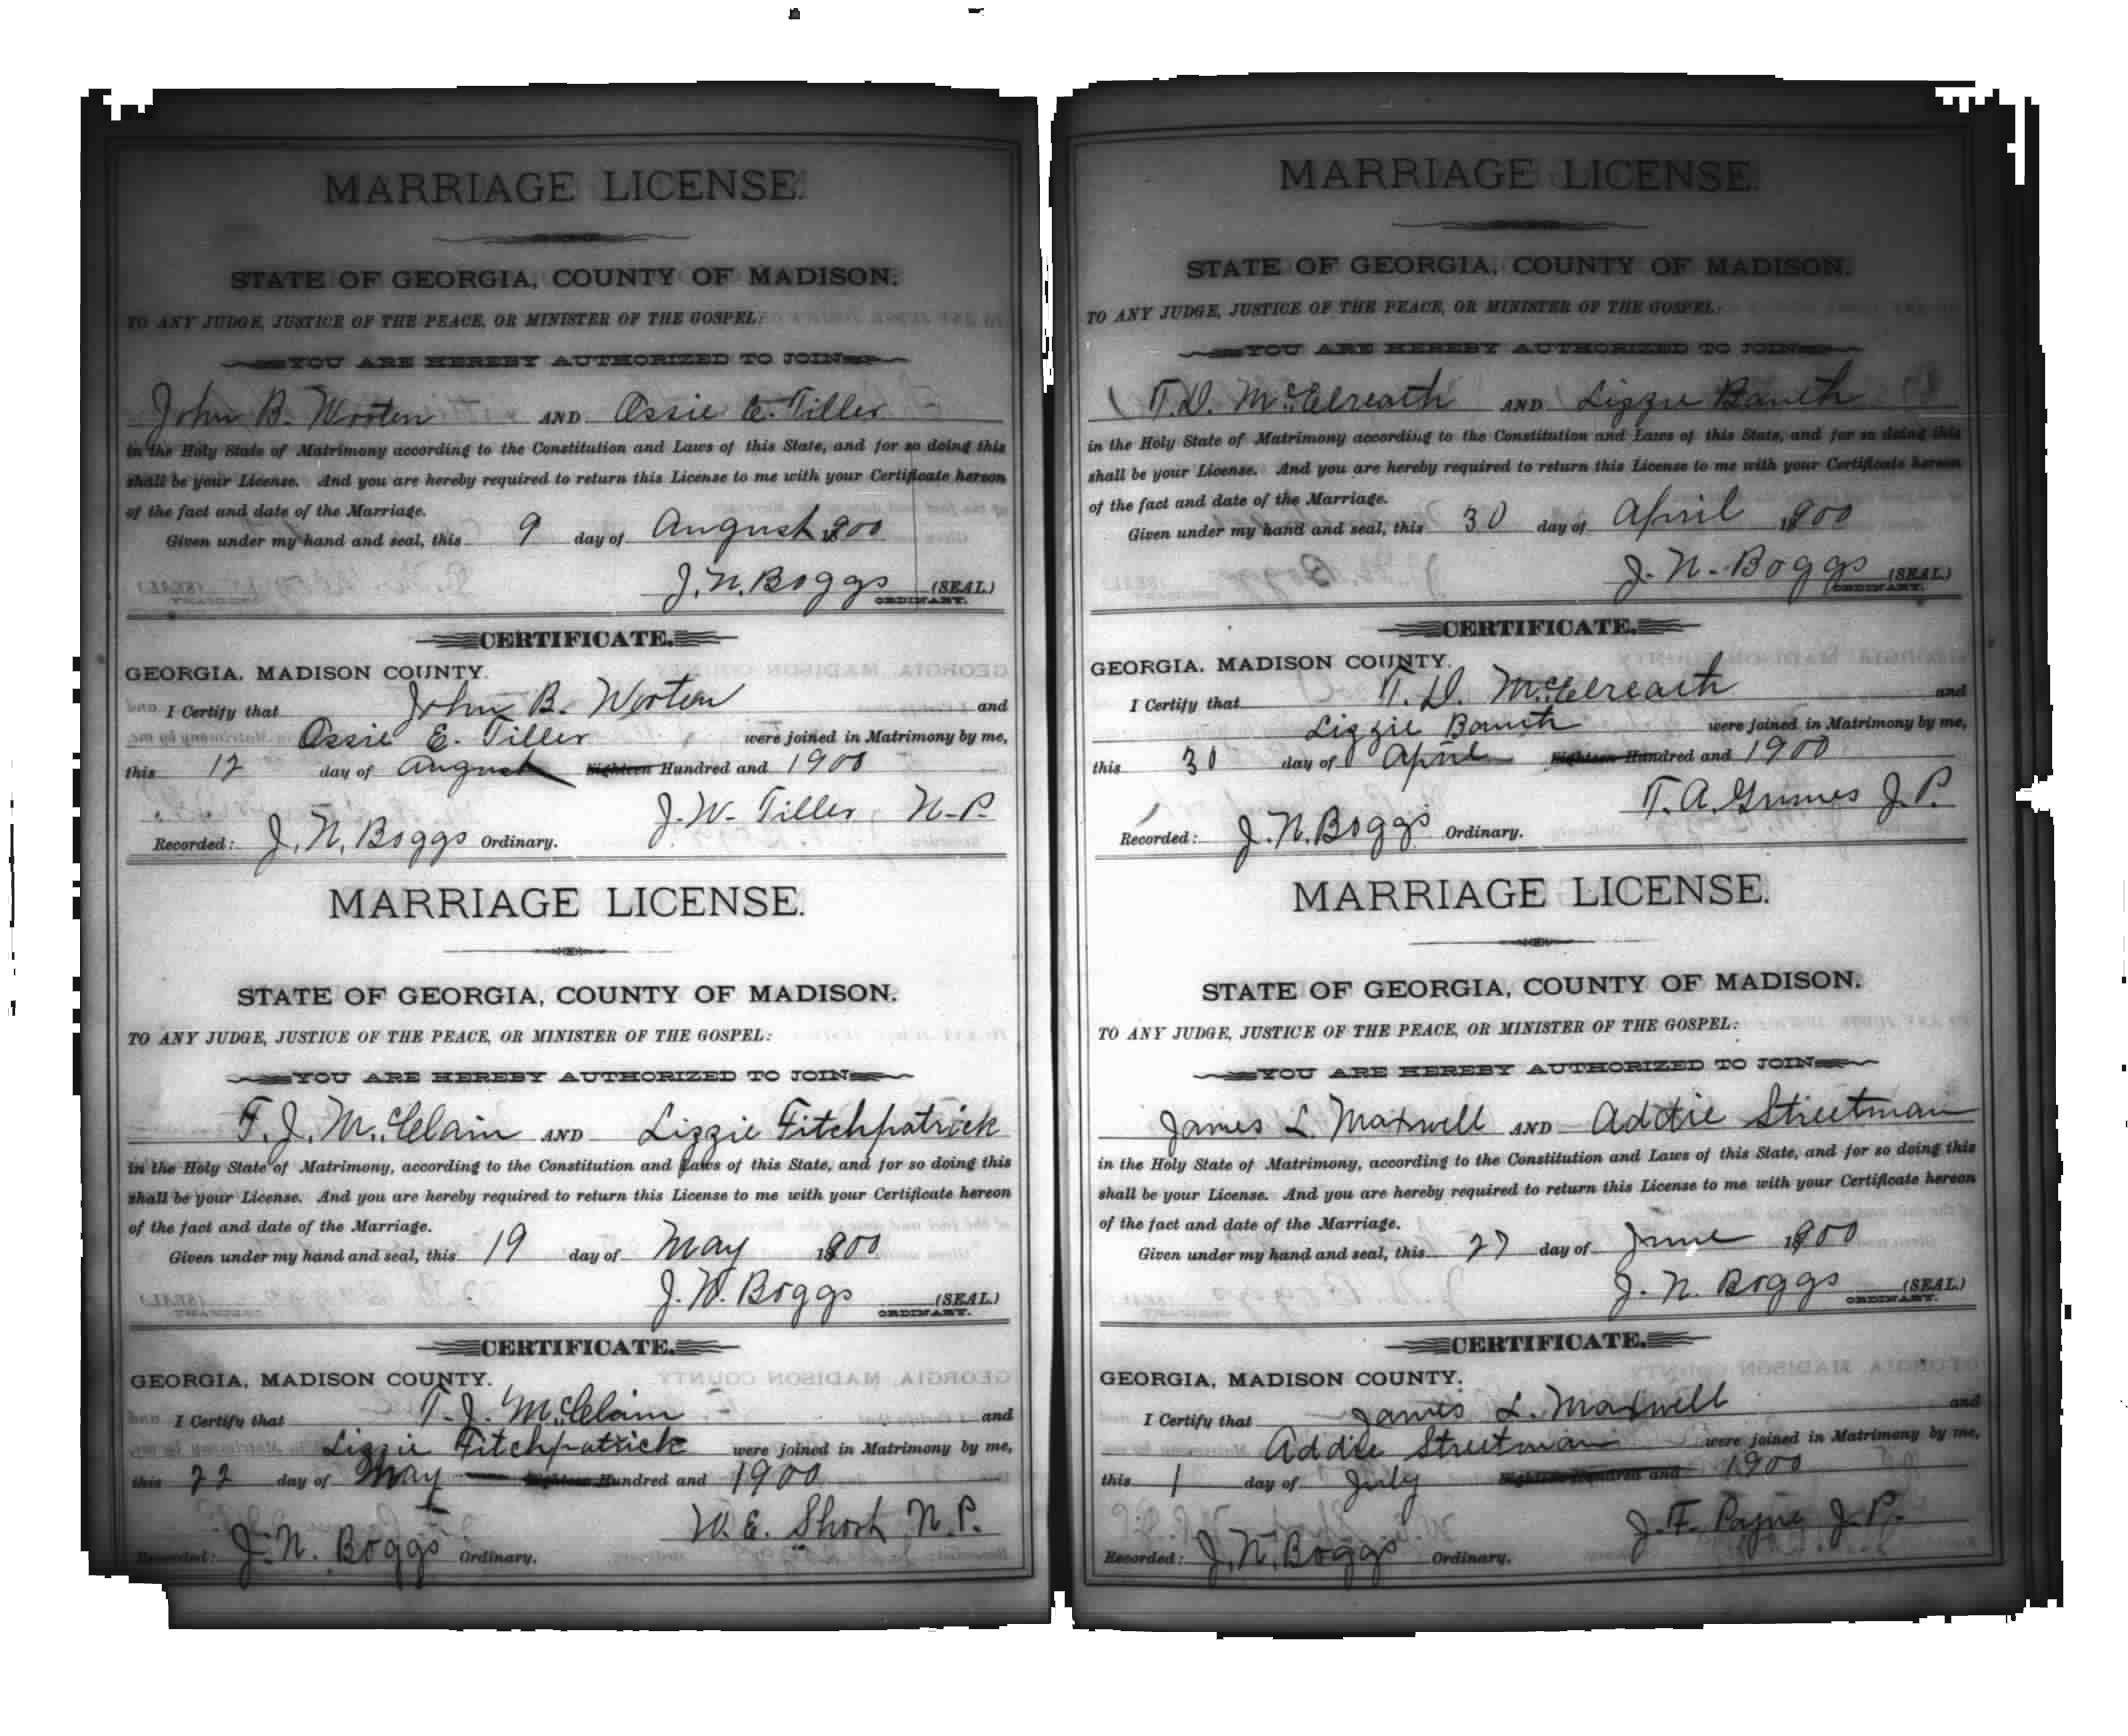 MARRIAGE LICENSE.
STATE OF GEORGIA, COUNTY OF MADISON.
TO ANY JUDGE, JUSTICE OF THE PEACE, OR MINISTER OF THE GOSPEL:
YOU ARE HEREBY AUTHORIZED TO JOIN
John B. Worten AND Ossie E. Tiller
in the Holy State of Matrimony according to the Constitution and Laws of this State, and for so doing this
shall be your License. And you are hereby required to return this License to me with your Certificate hereon
of the fact and date of the Marriage.
Given under my hand and seal, this 9 day of August 1900
J. N. Boggs (SEAL)
ORDINARY.
CERTIFICATE.
GEORGIA, MADISON COUNTY.
I Certify that John B. Worten and
Ossie E. Tiller were joined in Matrimony by me,
this 12 day of August Eighteen Hundred and 1900
J. W. Tiller, N.P.
Recorded: J. N. Boggs Ordinary.
MARRIAGE LICENSE.
STATE OF GEORGIA, COUNTY OF MADISON.
TO ANY JUDGE, JUSTICE OF THE PEACE, OR MINISTER OF THE GOSPEL:
YOU ARE HEREBY AUTHORIZED TO JOIN
T. J. McClain AND Lizzie Fitchpatrick
in the Holy State of Matrimony, according to the Constitution and Laws of this State, and for so doing this
shall be your License. And you are hereby required to return this License to me with your Certificate hereon
of the fact and date of the Marriage.
Given under my hand and seal, this 19 day of May 1900
J. N. Boggs (SEAL)
ORDINARY.
CERTIFICATE.
GEORGIA, MADISON COUNTY.
I Certify that T. J. McClain and
Lizzie Fitchpatrick were joined in Matrimony by me,
this 22 day of May Eighteen Hundred and 1900
W. E. Short N.P.
Recorded: J. N. Boggs Ordinary.
MARRIAGE LICENSE.
STATE OF GEORGIA, COUNTY OF MADISON.
TO ANY JUDGE, JUSTICE OF THE PEACE, OR MINISTER OF THE GOSPEL:
YOU ARE HEREBY AUTHORIZED TO JOIN
T. D. McElreath AND Lizzie
in the Holy State of Matrimony according to the Constitution and Laws of this State, and for so doing this
shall be your License. And you are hereby required to return this License to me with your Certificate hereon
of the fact and date of the Marriage.
Given under my hand and seal, this 30 day of April 1900
J. N. Boggs (SEAL)
ORDINARY.
CERTIFICATE.
GEORGIA, MADISON COUNTY.
I Certify that T. D. McElreath and
Lizzie were joined in Matrimony by me,
this 30 day of April Eighteen Hundred and 1900
T. A. Grimes J.P.
Recorded: J. N. Boggs Ordinary.
MARRIAGE LICENSE.
STATE OF GEORGIA, COUNTY OF MADISON.
TO ANY JUDGE, JUSTICE OF THE PEACE, OR MINISTER OF THE GOSPEL:
YOU ARE HEREBY AUTHORIZED TO JOIN
James L. Maxwell AND Addie Streetman
in the Holy State of Matrimony, according to the Constitution and Laws of this State, and for so doing this
shall be your License. And you are hereby required to return this License to me with your Certificate hereon
of the fact and date of the Marriage.
Given under my hand and seal, this 27 day of June 1900
J. N. Boggs (SEAL)
ORDINARY.
CERTIFICATE.
GEORGIA, MADISON COUNTY.
I Certify that James L. Maxwell and
Addie Streetman were joined in Matrimony by me,
this 1 day of July Eighteen Hundred and 1900
J. F. Payne J.P.
Recorded: J. N. Boggs Ordinary.